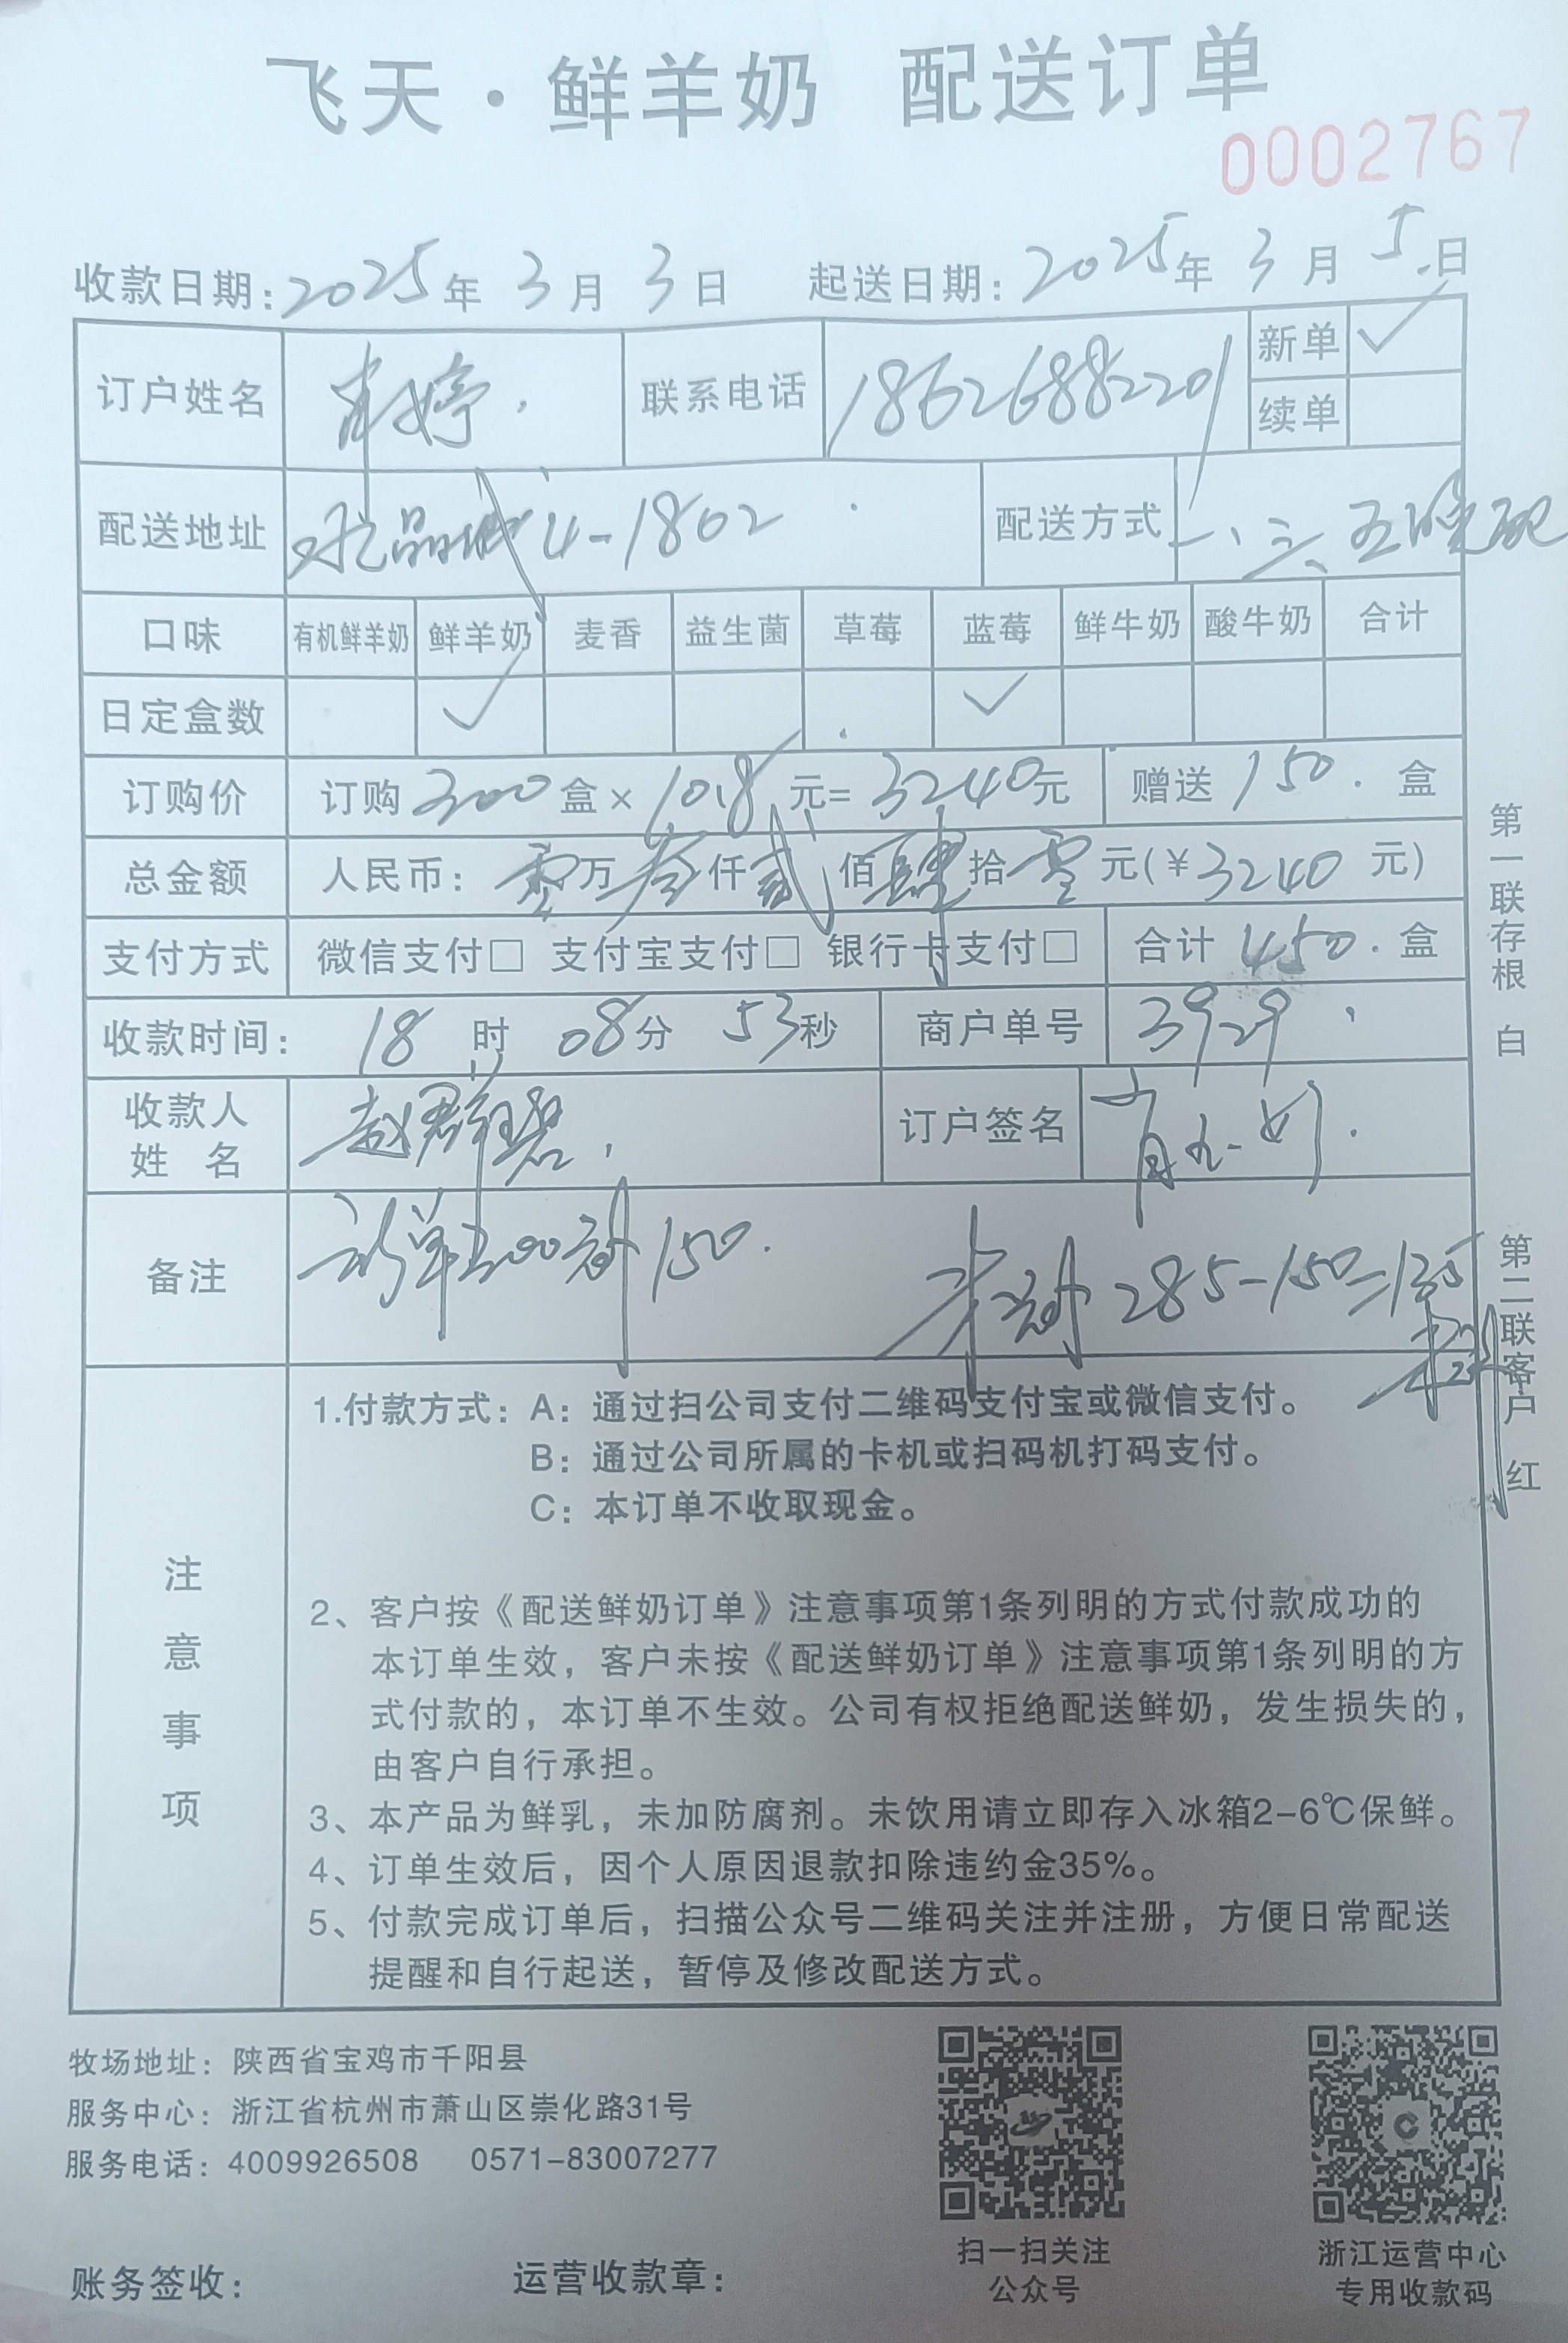 飞天·鲜羊奶 配送订单
0002767
收款日期：2025年3月3日 起送日期：2025年3月5日
订户姓名 肖婷 联系电话 18626882201 新单 ✓
续单
配送地址 水晶城4-1802 配送方式 一、三、五晚配
口味 有机鲜羊奶 鲜羊奶 麦香 益生菌 草莓 蓝莓 鲜牛奶 酸牛奶 合计
日定盒数 ✓ ✓
订购价 订购300盒×10.8元=3240元 赠送150.盒
总金额 人民币：零万叁仟贰佰肆拾零元(¥3240元)
支付方式 微信支付□ 支付宝支付□ 银行卡支付□ 合计450.盒
收款时间：18时08分53秒 商户单号 3929
收款人姓名 赵群碧 订户签名
备注 新单300送150. 285-150=135
注意事项
1.付款方式：A：通过扫公司支付二维码支付宝或微信支付。
B：通过公司所属的卡机或扫码机打码支付。
C：本订单不收取现金。
2、客户按《配送鲜奶订单》注意事项第1条列明的方式付款成功的
本订单生效，客户未按《配送鲜奶订单》注意事项第1条列明的方
式付款的，本订单不生效。公司有权拒绝配送鲜奶，发生损失的，
由客户自行承担。
3、本产品为鲜乳，未加防腐剂。未饮用请立即存入冰箱2-6℃保鲜。
4、订单生效后，因个人原因退款扣除违约金35%。
5、付款完成订单后，扫描公众号二维码关注并注册，方便日常配送
提醒和自行起送，暂停及修改配送方式。
第一联存根 白
第二联客户 红
牧场地址：陕西省宝鸡市千阳县
服务中心：浙江省杭州市萧山区崇化路31号
服务电话：4009926508 0571-83007277
扫一扫关注
公众号
浙江运营中心
专用收款码
账务签收： 运营收款章：